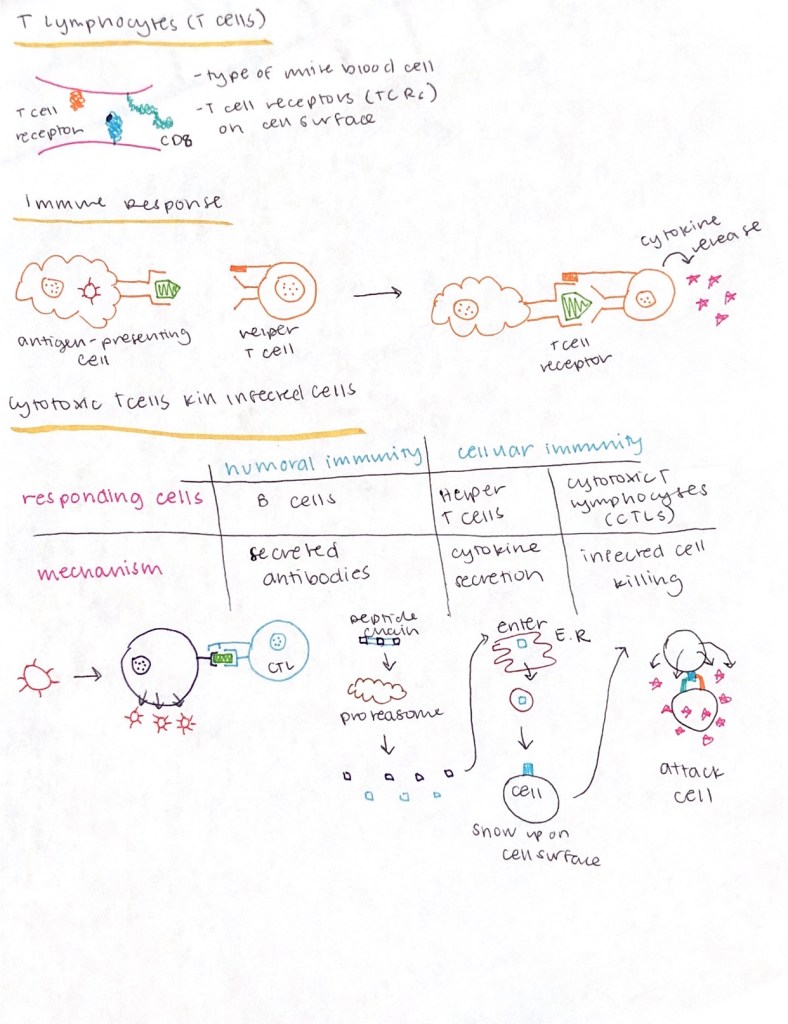 T Lymphocytes (T cells)
- type of white blood cell
- T cell receptors (TCRs)
on cell surface
T cell
receptor
CD8
Immune Response
cytokine
release
antigen-presenting
cell
helper
T cell
T cell
receptor
Cytotoxic T cells kill infected cells
humoral immunity
cellular immunity
responding cells
B cells
Helper
T cells
cytotoxic T
lymphocytes
(CTLs)
mechanism
secreted
antibodies
cytokine
secretion
infected cell
killing
CTL
peptide
chain
proteasome
enter
E.R
cell
show up on
cell surface
attack
cell